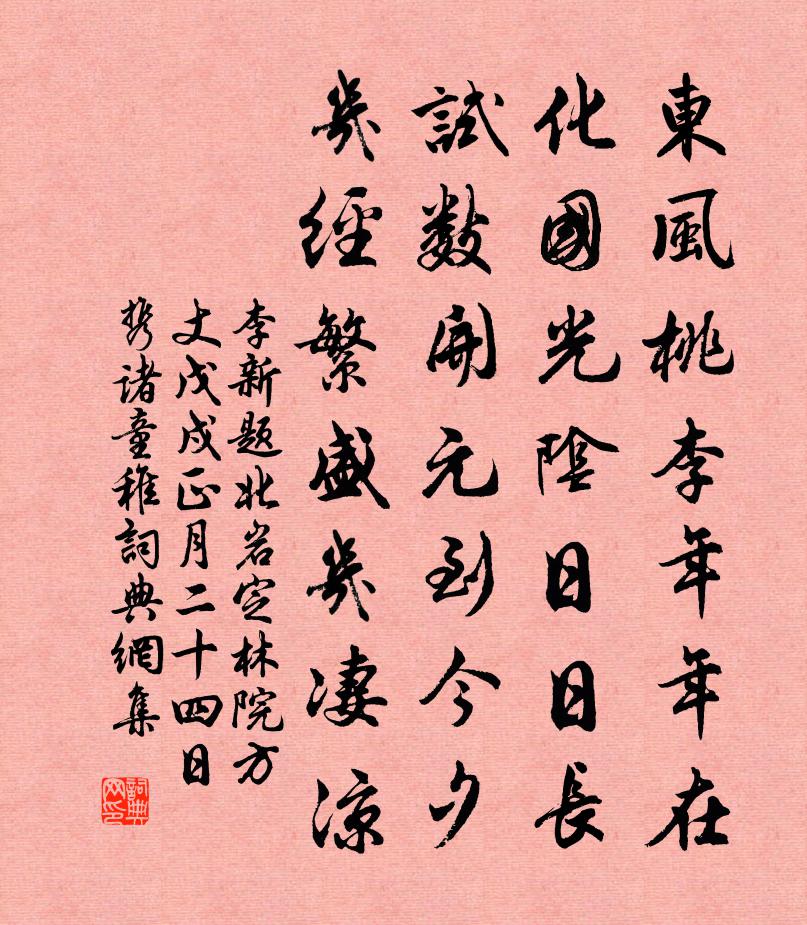 東風桃李年年在
化國光陰日日長
試數開元到今夕
幾經繁盛幾凄涼
李新題北岩定林院方
丈戊戌正月二十四日
携諸童稚詞典網集
詞典网印